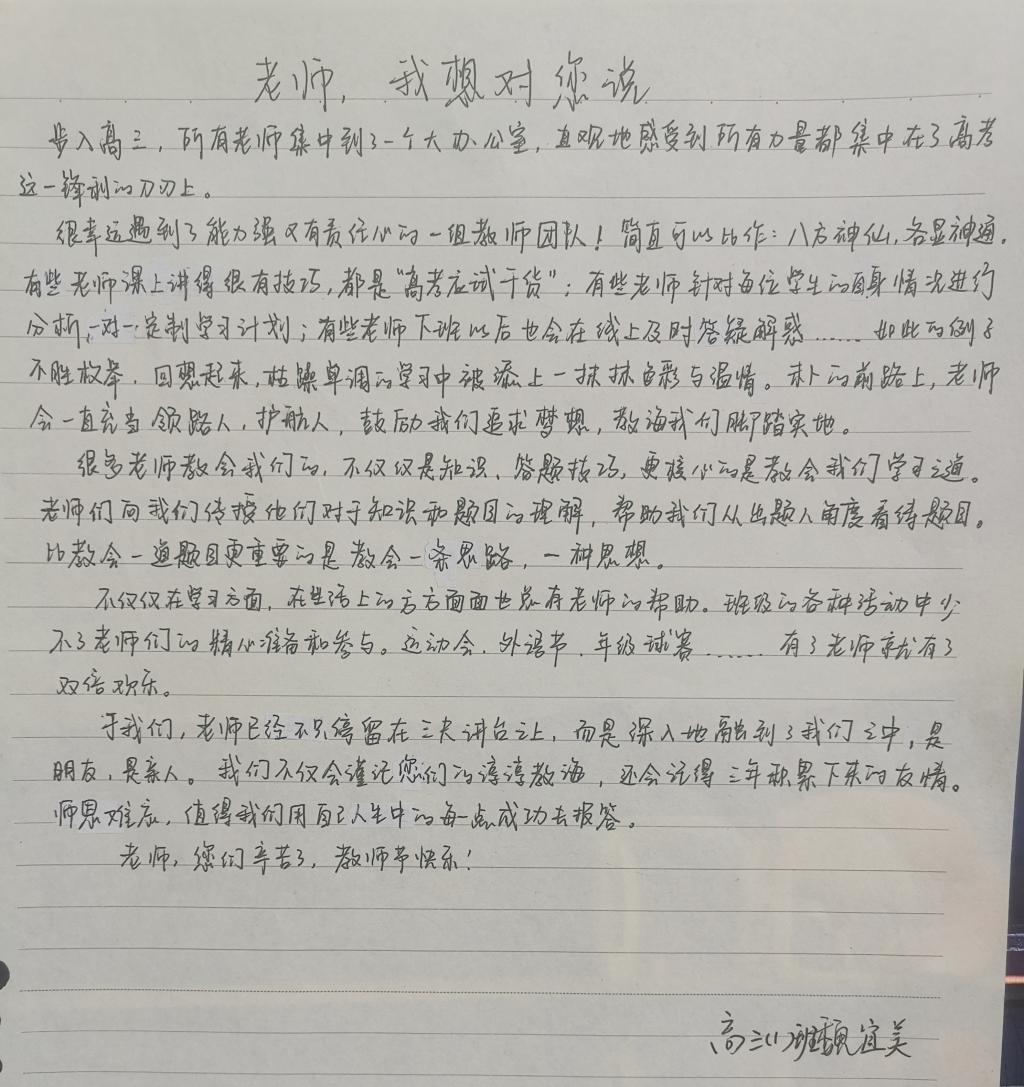 老师，我想对您说
步入高三，所有老师集中到了一个大办公室，直观地感受到所有力量都集中在了高考
这一锋利的刀刃上。
很幸运遇到了能力强又有责任心的一组教师团队！简直可以比作：八方神仙，各显神通。
有些老师课上讲得很有技巧，都是“高考应试干货”；有些老师针对每位学生的自身情况进行
分析，一对一定制学习计划；有些老师下班以后也会在线上及时答疑解惑……如此的例子
不胜枚举。回想起来，枯躁单调的学习中被添上一抹抹色彩与温情。未卜的前路上，老师
会一直充当领路人，护航人，鼓励我们追求梦想，教诲我们脚踏实地。
很多老师教会我们的，不仅仅是知识、答题技巧，更核心的是教会我们学习之道。
老师们向我们传授他们对于知识和题目的理解，帮助我们从出题人角度看待题目。
比教会一道题目更重要的是教会一条思路，一种思想。
不仅仅在学习方面，在生活上的方方面面也总有老师的帮助。班级的各种活动中少
不了老师们的精心准备和参与。运动会、外语节、年级球赛……有了老师就有了
双倍欢乐。
于我们，老师已经不只停留在三尺讲台之上，而是深入地融到了我们之中，是
朋友，是亲人。我们不仅会谨记您们的谆谆教诲，还会记得三年积累下来的友情。
师恩难忘，值得我们用自己人生中的每一点成功去报答。
老师，您们辛苦了，教师节快乐！
高三(1)班 宜美